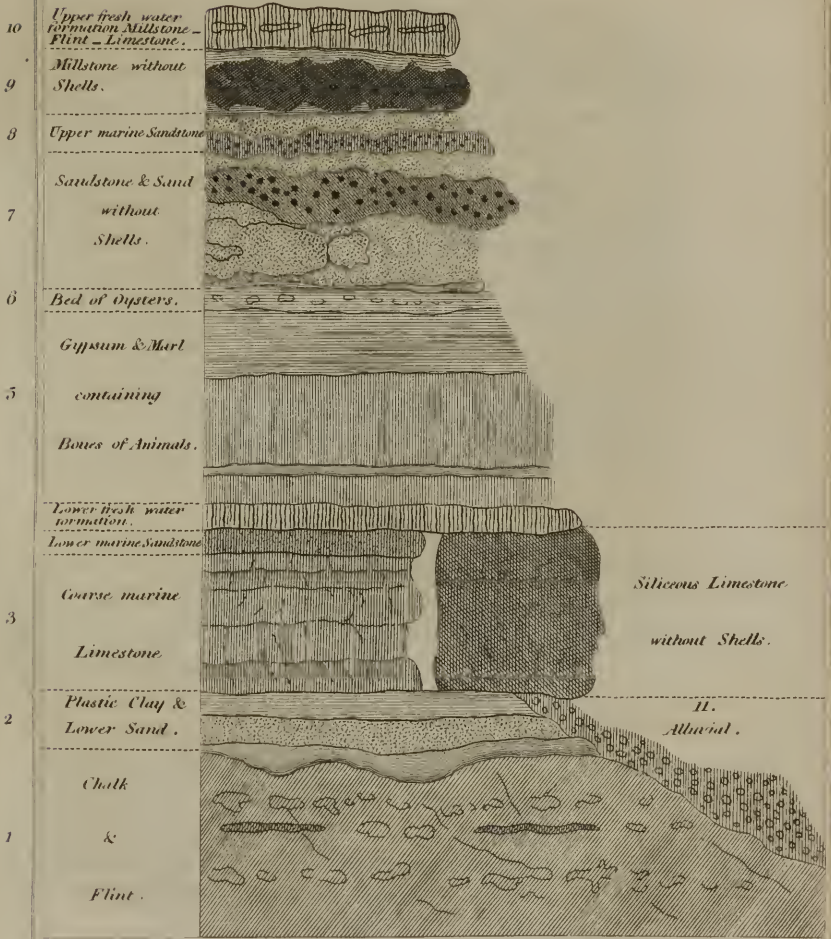 10
Upper fresh water
formation Millstone _
Flint _ Limestone.
9
Millstone without
Shells.
8
Upper marine Sandstone
7
Sandstone & Sand
without
Shells.
6
Bed of Oysters.
5
Gypsum & Marl
containing
Bones of Animals.
Lower fresh water
formation.
Lower marine Sandstone
3
Coarse marine
Limestone
Siliceous Limestone
without Shells.
2
Plastic Clay &
Lower Sand.
11.
Alluvial.
1
Chalk
&
Flint.